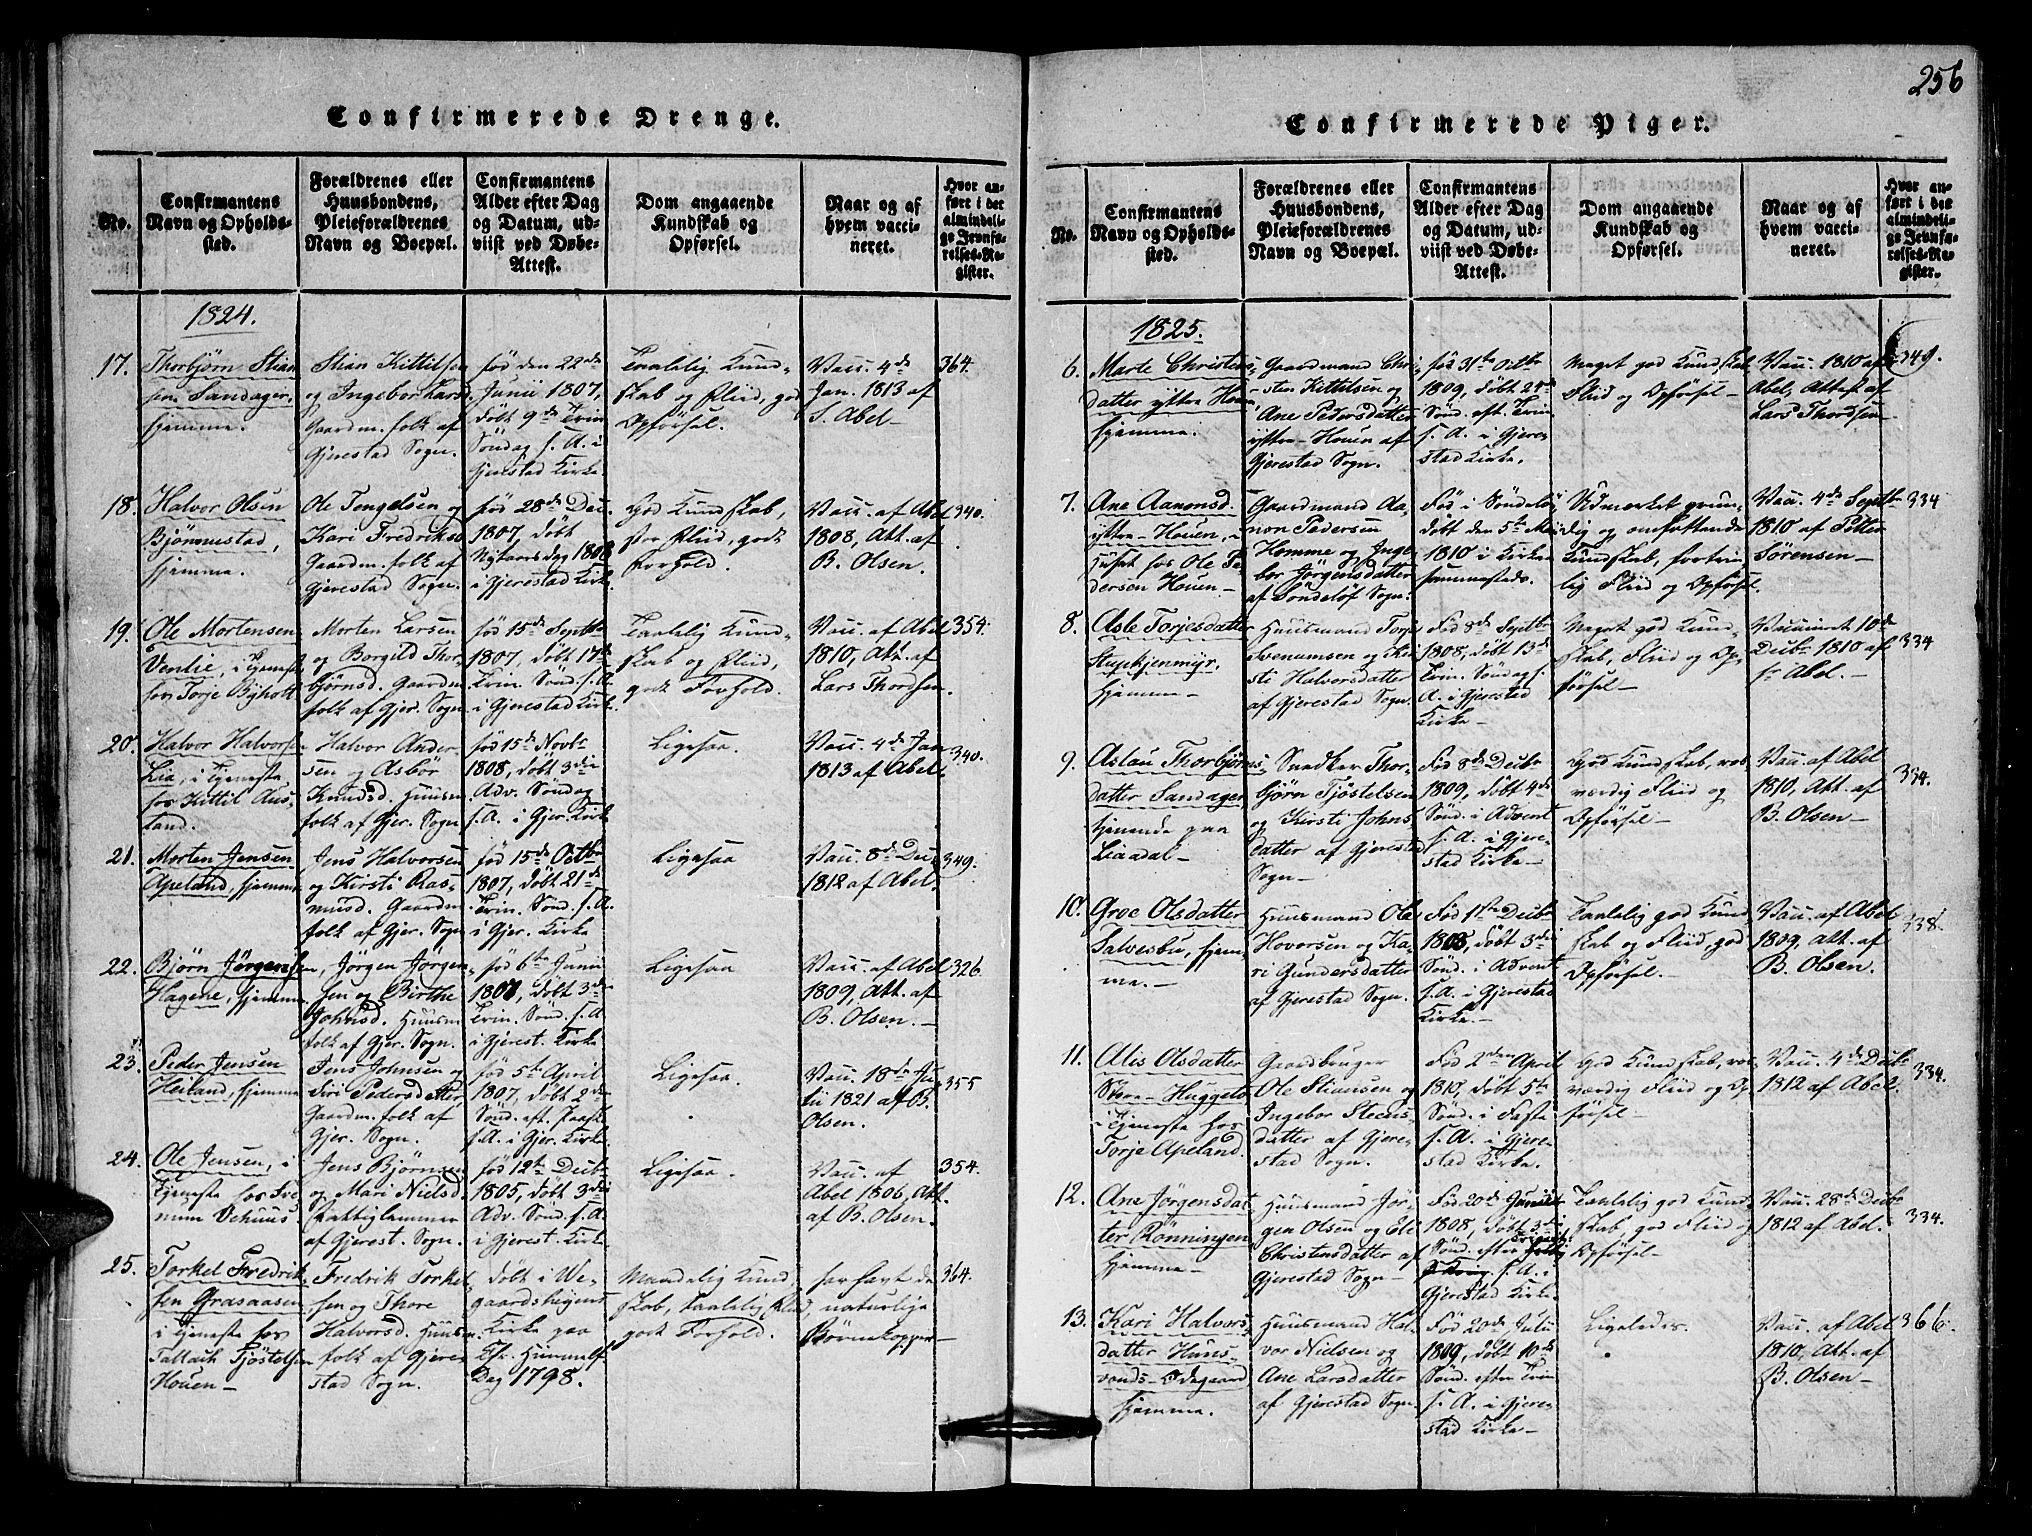 256
Confirmerede Drenge.
No.
Confirmantens
Navn og Opholds-
sted.
Forældrenes eller
Huusbondens,
Pleieforældrenes
Navn og Boepæl.
Confirmantens
Alder efter Dag
og Datum, ud-
viist ved Døbe-
Attest.
Dom angaaende
Kundskab og
Opførsel.
Naar og af
hvem vacci-
neret.
Hvor an-
ført i det
almindeli-
ge Jevnfø-
relses-Re-
gister.
1824.
17.
Thorbjørn Stian
sen Sandager,
hjemme.
Stian Kittilsen
og Ingebor Lars
Gaardm. folk af
Gjerestad Sogn.
fød den 22de
Junii 1807,
døbt 9de Trin
Söndag s. A. i
Gjerestad Kirke.
Taalelig Kund-
skab og Fliid, god
Opførsel.
Vacc. 4de
Jan. 1813 af
S. Abel
364.
18.
Halvor Olsen
Bjørnestad,
hjemme.
Ole Tengelsen og
Kari Fredriks
Gaardm. folk af
Gjerestad Sogn.
fød 28de Dec.
1807, døbt
Nytaarsdag 1808
i Gjerestad Kirk.
God Kundskab,
stor Fliid, godt
Forhold.
Vacc. af Abel
1808, Att. af
B. Olsen.
340.
19.
Ole Mortensen
Venlie, i Tjeneste
hos Torje Byholt
Morten Larsen
og Borgild Thor-
björnsd. Gaardm.
folk af Gjer. Sogn
fød 15de Septbr
1807, døbt 17de
Trin. Sönd. s. A.
i Gjerestad Kirk.
Taalelig Kund-
skab og Fliid,
godt Forhold.
Vacc. af Abel
1810, Att. af
Lars Thorsen.
354.
20.
Halvor Halvorsen
Lia, i Tjeneste
hos Kittil Aus-
land.
Halvor Ander-
sen og Asbör
Knudsd. Huusm.
folk af Gjer. Sogn
fød 15de Novbr
1808, døbt 3die
Adv. Söndag
s. A. i Gjer. Kirke
Ligesaa.
Vacc. 4de Jan
1813 af Abel.
340.
21.
Morten Jensen
Apeland, hjemme
Jens Halvorsen
og Kirsti Ras-
musd. Gaardm.
folk af Gjer. Sogn
fød 15de Octbr
1807, døbt 21de
Trin. Sönd. s. A.
i Gjer. Kirke
Ligesaa
Vacc. 8de Dec.
1812 af Abel.
349.
22.
Bjørn Jørgensen,
Hagene, hjemme
Jørgen Jørgen-
sen og Birthe
Johnsd. Huusm
folk af Gjer. Sogn.
fød 6te Junii
1807, døbt 3de
Trin. Sönd. s. A
i Gjerest. Kirke
Ligesaa
Vacc. af Abel
1809, Att. af
B. Olsen.
326
23.
Peder Jensen
Heiland, hjemme
Jens Johnsen og
Siri Pedersdatter
Gaardm. folk af
Gjer. Sogn.
fød 5te April
1807, døbt 2de
Sönd. eft. Paask.
s. A. i Gjer. Kirke.
Ligesaa.
Vacc. 18de Ju-
lii 1821 af B.
Olsen.
355
24.
Ole Jensen, i
Tjeneste hos
Vehuus
Jens Bjørnsen
og Mari Nielsd.
Fattiglemmer
af Gjerest. Sogn.
fød 12te Decbr
1805, døbt 3die
Adv. Sönd. s. A.
i Gjerest. Kirke
Ligesaa.
Vacc. af
Abel 1806, Att.
af B. Olsen.
354.
25.
Torkel Fredrik
sen Grasaasen
i Tjeneste hos
Tallach Tjöstelsen
Houen
Fredrik Torkel-
sen og Thore
Halvorsd. Huusm.
folk af Gjere-
stad Sogn.
døbt i We-
gaardsheyens
Kirke paa
Chr. Himmelf.
Dag 1798.
Maadelig Kund
skab, taalelig Fliid,
godt Forhold.
har havt de
naturlige
Børnekopper
364.
Confirmerede Piger.
No.
Confirmantens
Navn og Opholds-
sted.
Forældrenes eller
Huusbondens,
Pleieforældrenes
Navn og Boepæl.
Confirmantens
Alder efter Dag
og Datum, ud-
viist ved Døbe-
Attest.
Dom angaaende
Kundskab og
Opførsel.
Naar og af
hvem vacci-
neret.
Hvor an-
ført i det
almindeli-
ge Jevnfø-
relses-Re-
gister.
1825.
6.
Marte Christens-
datter yttre Houen
hjemme.
Gaardmand Chri-
sten Kittilsen og
Ane Pedersdatter
yttre-Houen af
Gjerestad Sogn.
fød 31te Octbr
1809, døbt 24de
Sönd. eft. Trin
s. A. i Gjere-
stad Kirke.
Meget god Kundskab,
Fliid og Opførsel
Vacc. 1810 af
Abel, Attest af
Lars Thordsen
349.
7.
Ane Aanonsd.
yttre-Houen,
huset hos Ole Pe
dersen Houen
Gaardmand Aa-
non Pedersen
Homme og Inge-
bor Jörgensdatter
af Söndeløf Sogn.
Fød i Söndeløf
døbt den 5te Mai
1810 i Kirken
sammesteds.
Udmerket grun-
dig og omfattende
Kundskab, fortrin-
lig Fliid og Opførsel.
Vacc. 4de Septbr
1810 af Petter
Sörensen
334
8.
Asle Torjesdatter
Stupkjenmyr,
hjemme
Huusmand Torje
Svenumsen og Kir
sti Halvorsdatter
af Gjerestad Sogn.
Fød 8de Septbr
1808, døbt 13de
Trin. Söndag s.
A. i Gjerestad
Kirke
Meget god Kund-
skab, Fliid og Op-
førsel
Vaccineret 10de
Decbr. 1810 af
Hr. Abel.
334
9.
Aslau Thorbjörns-
datter Sandager
tjenende paa
Liaadal
Snedker Thor-
björn Tjöstelsen
og Kirsti Johns
datter af Gjerestad
Sogn
Fød 8de Decbr
1809, døbt 4de
Sönd. i Advent
s. A. i Gjere-
stad Kirke
God Kundskab, ros-
værdig Fliid og
Opførsel
Vacc. af Abel
1810, Att. af
B. Olsen
334.
10.
Groe Olsdatter
Salvesbu, hjem-
me.
Huusmand Ole
Hovorsen og Ka-
ri Gundersdatter
af Gjerestad Sogn.
Fød 1ste Decbr
1808, døbt 3die
Sönd. i Advent
s. A. i Gjerestad
Kirke.
Taalelig god Kund
skab og Fliid, god
Opførsel.
Vacc. af Abel
1809. Att. af
B. Olsen.
338.
11.
Alis Olsdatter
Store-Huggeto
i Tjeneste hos
Torje Apeland.
Gaardbruger
Ole Stiansen og
Ingebor Steens
datter af Gjere-
stad Sogn.
Fød 2den April
1810, døbt 5te
Sönd. i Faste
s. A. i Gjere-
stad Kirke.
God Kundskab, ros-
værdig Fliid og Op-
førsel
Vacc. 4de Decbr
1812 af Abel.
334.
12.
Ane Jörgensdat
ter Rönningen,
hjemme
Huusmand Jör-
gen Olsen og Ele
Christensdatter af
Gjerestad Sogn
Fød 20de Junii
1808, døbt 3die
Sönd. efter
s. A. i
Gjerestad Kirke.
Taalelig god Kund-
skab god Fliid og
Opførsel
Vacc. 28de Decbr
1812 af Abel.
334.
13.
Kari Halvors
datter Huus-
vands-Ödegaard
hjemme.
Huusmand Hal-
vor Nielsen og
Ane Larsdatter
af Gjerestad Sogn.
Fød 20de Julii
1809, døbt 10de
Sönd. efter Trin
s. A. i Gjere-
stad Kirke
Ligeledes.
Vacc. af Abel
1810, Att. af
B. Olsen
366.